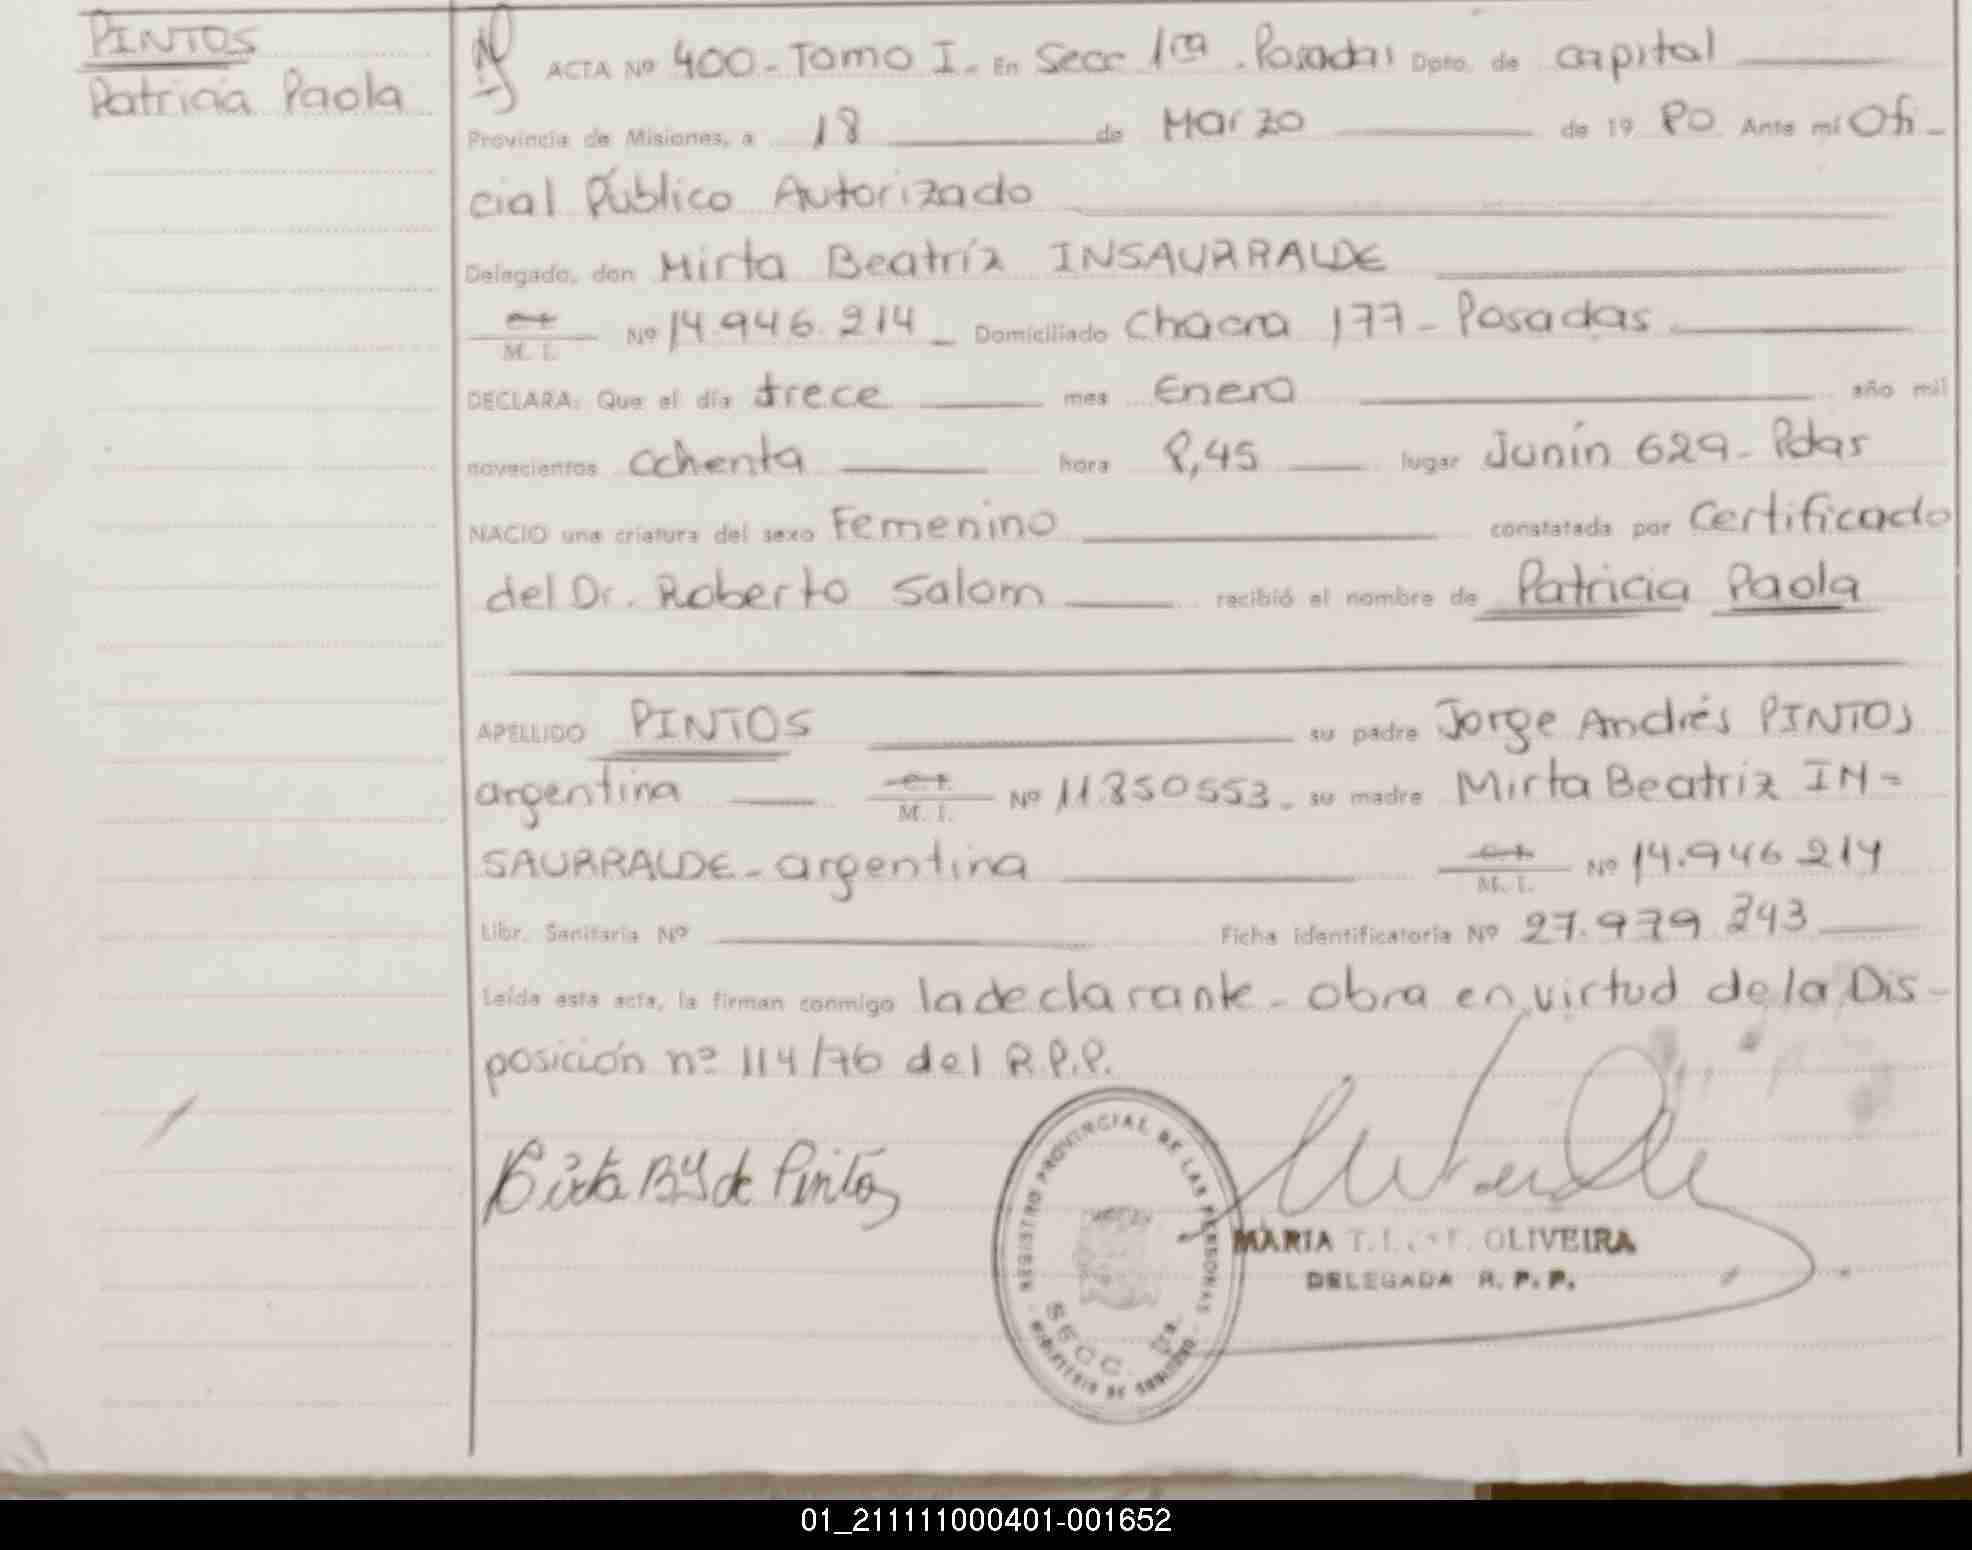 PINTOS
Patricia Paola
ACTA Nº 400 - Tomo I - En Secc 1ra . Posadas Dpto. de capital
Provincia de Misiones, a 18 de Marzo de 19 80 Ante mí Ofi-
cial Público Autorizado
Delegado, don Mirta Beatríz INSAURRALDE
M. I. Nº 14.946.214 - Domiciliado Chacra 177 - Posadas
DECLARA: Que el día trece mes Enero año mil
novecientos ochenta hora 8,45 lugar Junín 629 - Pdas
NACIO una criatura del sexo Femenino constatada por Certificado
del Dr. Roberto Salom recibió el nombre de Patricia Paola
APELLIDO PINTOS su padre Jorge Andrés PINTOS
argentina M. I. Nº 11.850553 - su madre Mirta Beatriz IN=
SAURRALDE - argentina M. I. Nº 14.946 214
Libr. Sanitaria Nº Ficha identificatoria Nº 27.979.343
Leída esta acta, la firman conmigo la declarante - obra en virtud de la Dis-
posición nº 114/76 del R.P.P.
de Pintos
REGISTRO PROVINCIAL DE LAS PERSONAS
SECC. 1RA.
MINISTERIO DE GOBIERNO
MARIA OLIVEIRA
DELEGADA R. P. P.
01_211111000401-001652